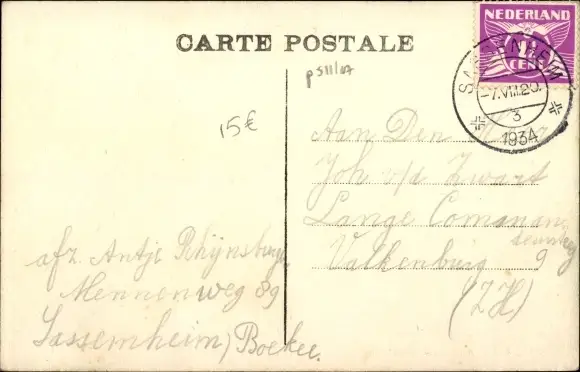 CARTE POSTALE
NEDERLAND
1½
CENT
SASSENHEIM
-7.VIII.20.
3
1934
p511/07
15€
Aan Den Heer
Joh v/d Zwart
Lange Comanan
dennweg
Valkenburg 9
(ZH)
afz. Antje Rhijnsburger
Mennenweg 89
Sassemheim/Boekee.